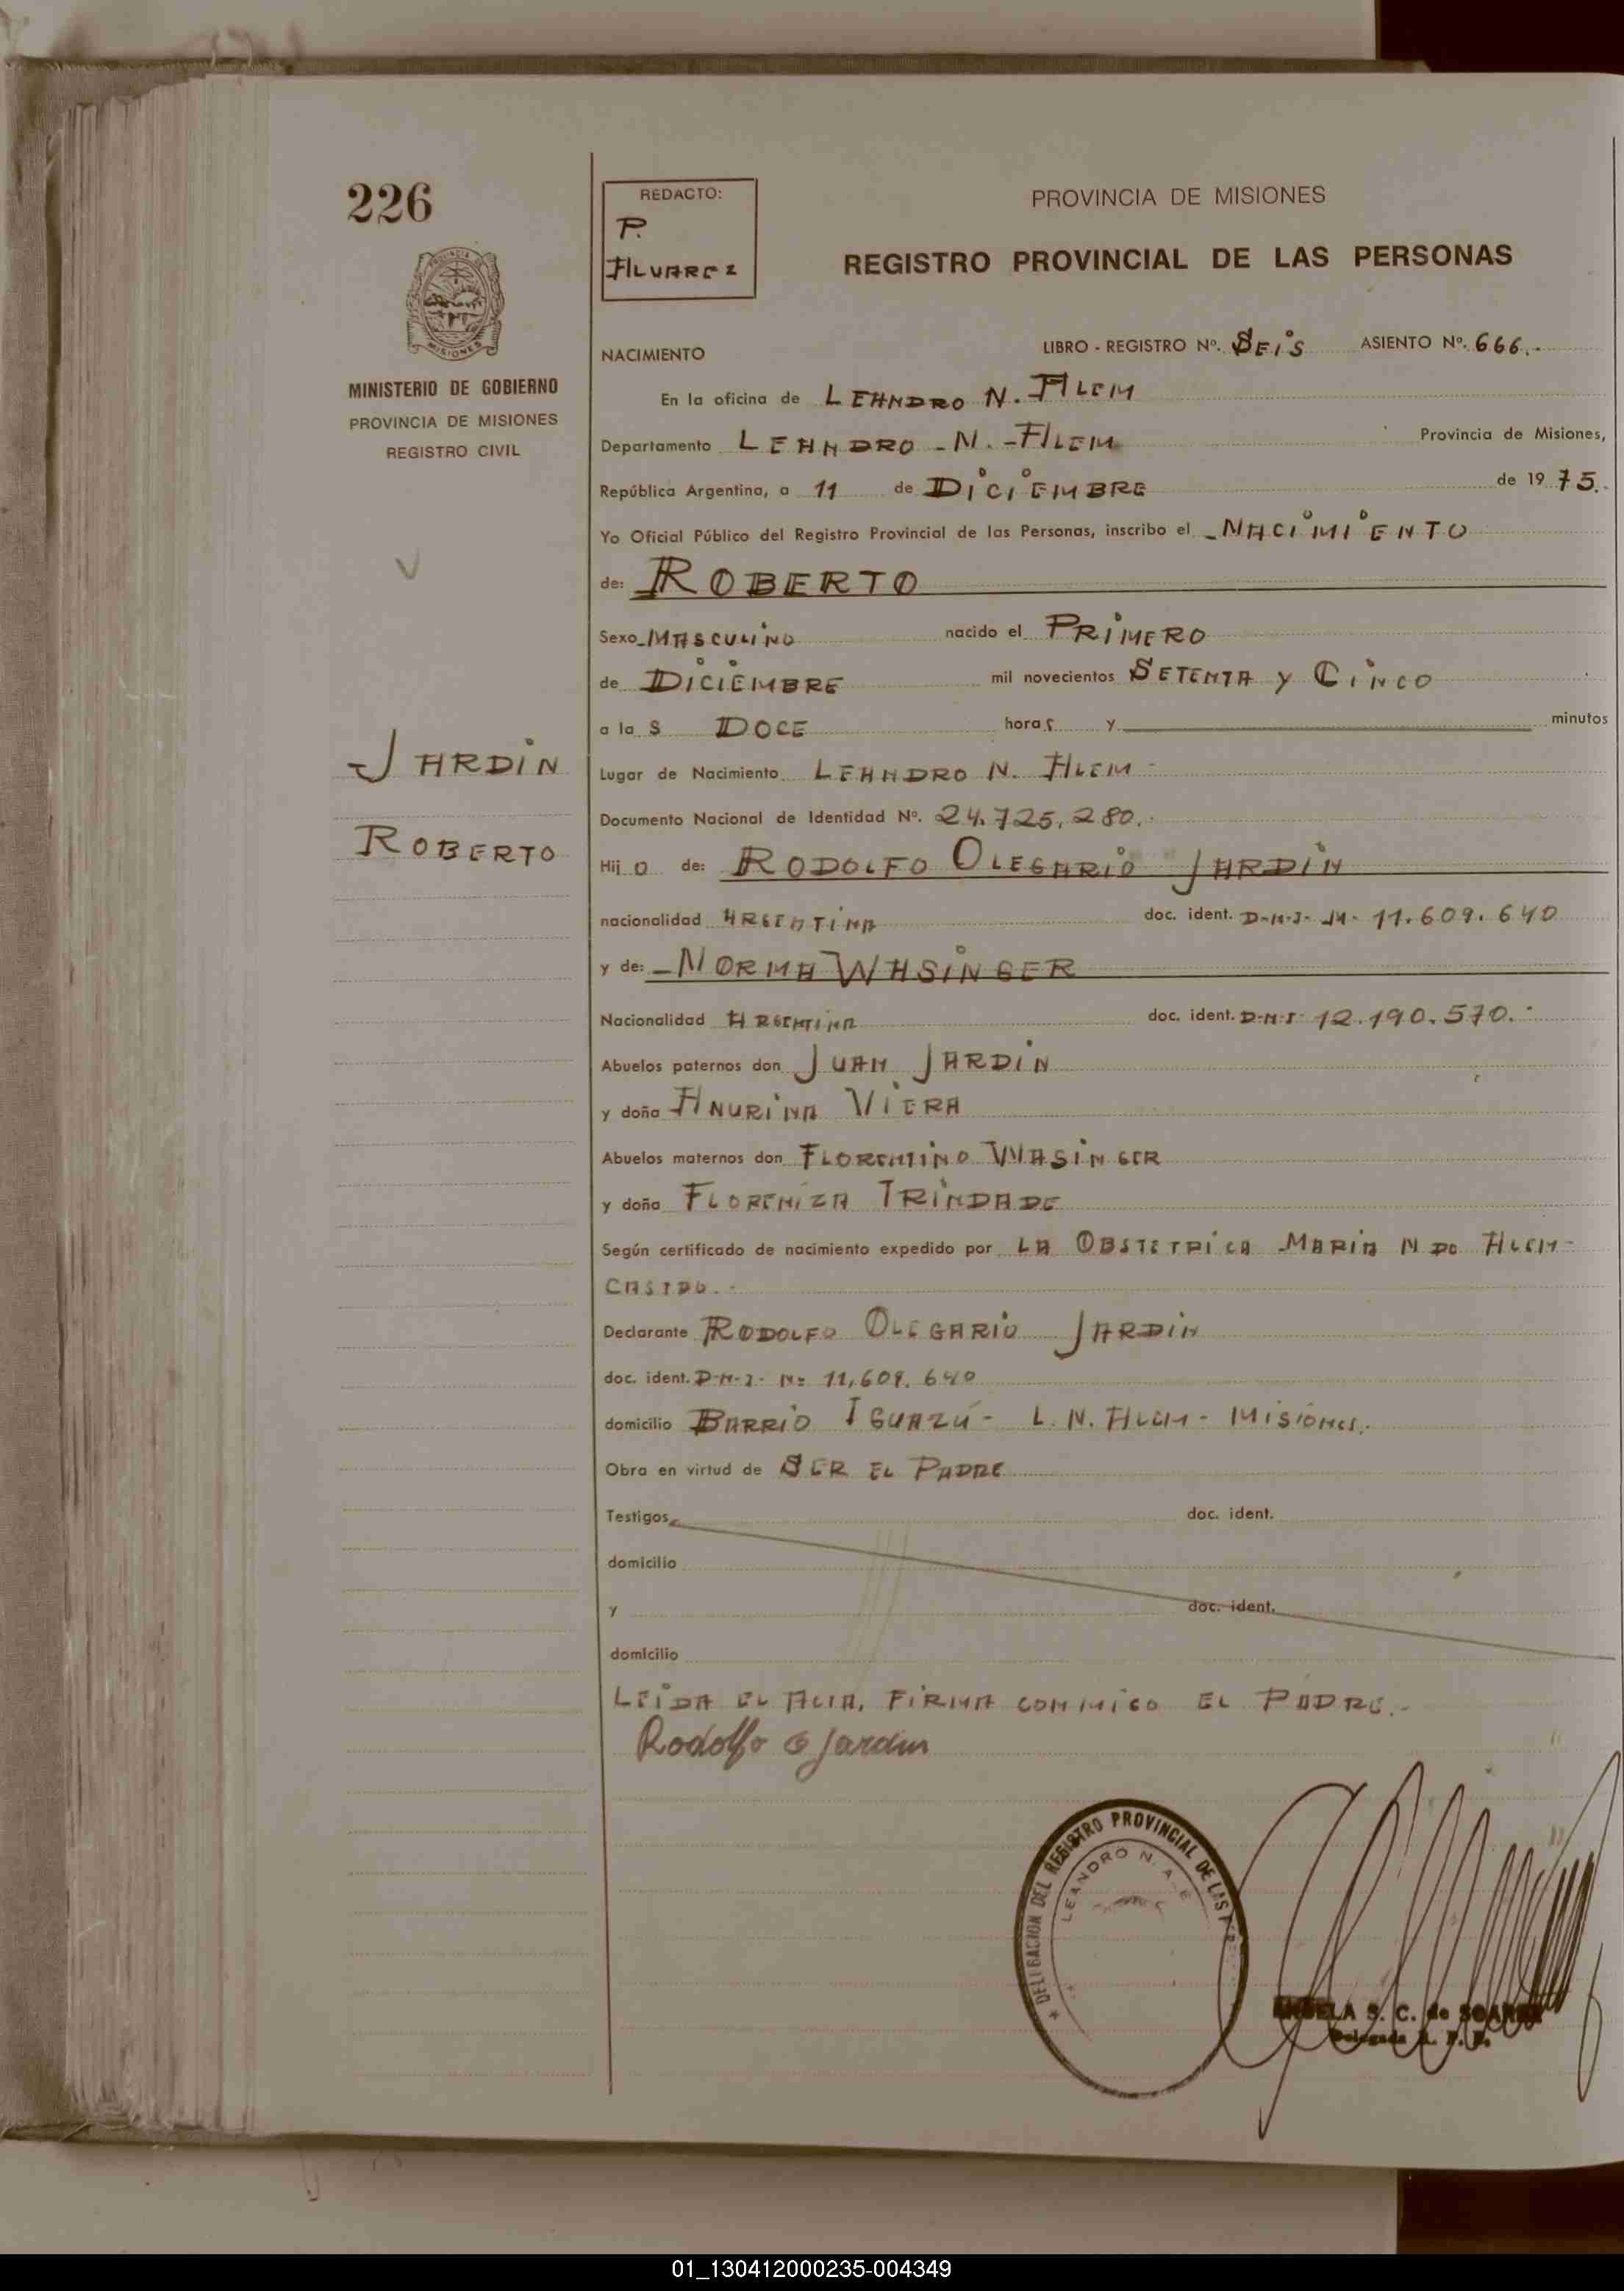 226
REDACTO:
P.
ALVAREZ
PROVINCIA DE MISIONES
REGISTRO PROVINCIAL DE LAS PERSONAS
MISIONES
MINISTERIO DE GOBIERNO
PROVINCIA DE MISIONES
REGISTRO CIVIL
JARDIN
ROBERTO
NACIMIENTO
LIBRO - REGISTRO Nº. SEIS ASIENTO Nº. 666.-
En la oficina de LEANDRO N. ALEM
Departamento LEANDRO - N. - ALEM Provincia de Misiones,
República Argentina, a 11 de DICIEMBRE de 1975.
Yo Oficial Público del Registro Provincial de las Personas, inscribo el - NACIMIENTO
de: ROBERTO
Sexo - MASCULINO nacido el PRIMERO
de DICIEMBRE mil novecientos SETENTA y CINCO
a la S DOCE horas y minutos
Lugar de Nacimiento LEANDRO N. ALEM -
Documento Nacional de Identidad Nº. 24.725.280.
Hij O de: RODOLFO OLEGARIO JARDIN
nacionalidad ARGENTINA doc. ident. D-N-I- 11.609.640
y de: - NORMA WASINGER
Nacionalidad ARGENTINA doc. ident. D-N-I- 12.190.570.-
Abuelos paternos don JUAN JARDIN
y doña ANURINA VIERA
Abuelos maternos don FLORENTINO WASINGER
y doña FLORENIZA TRINDADE
Según certificado de nacimiento expedido por LA OBSTETRICA MARIA N DO ALEM -
Declarante RODOLFO OLEGARIO JARDIN
doc. ident. D-N-I- Nº 11,609.640
domicilio BARRIO IGUAZÚ - L. N. ALEM - MISIONES.
Obra en virtud de SER EL PADRE
Testigos doc. ident.
domicilio
y doc. ident.
domicilio
LEIDA EL ACTA, FIRMA CONMIGO EL PADRE.-
Rodolfo O Jardin
DELEGACION DEL REGISTRO PROVINCIAL DE LAS
LEANDRO N.
S. C. de SOARES
Delegada
01_130412000235-004349